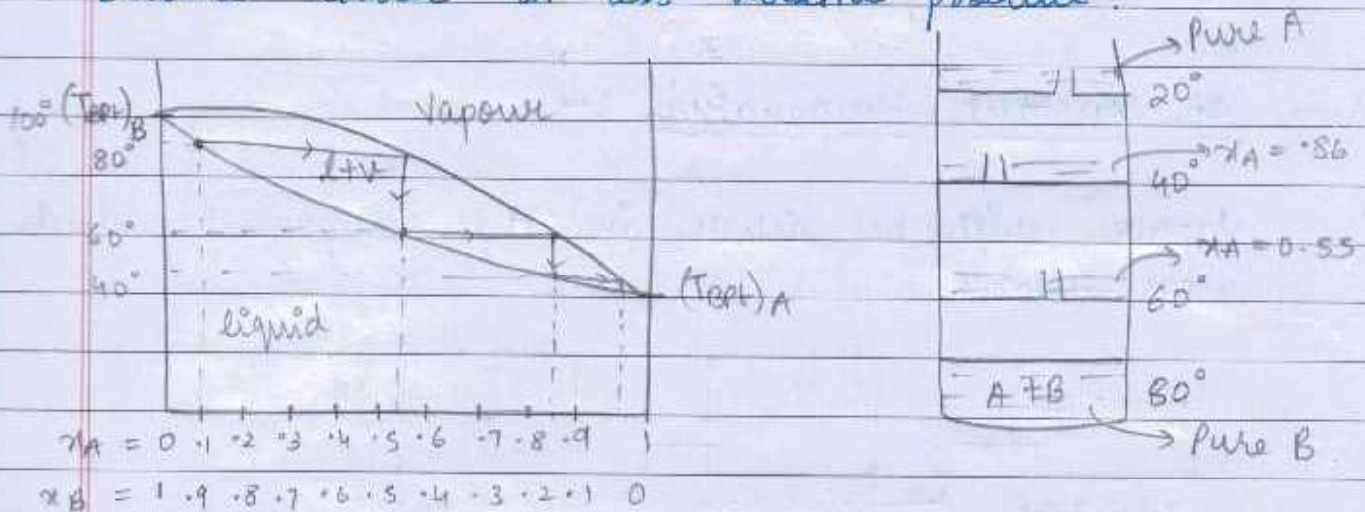 less volatile
100° (TBPt)B
80°
60°
40°
Vapour
l+v
liquid
(TBPt)A
xA = 0 .1 .2 .3 .4 .5 .6 .7 .8 .9 1
xB = 1 .9 .8 .7 .6 .5 .4 .3 .2 .1 0
Pure A
20°
xA = .86
40°
xA = 0.55
60°
A+B
80°
Pure B